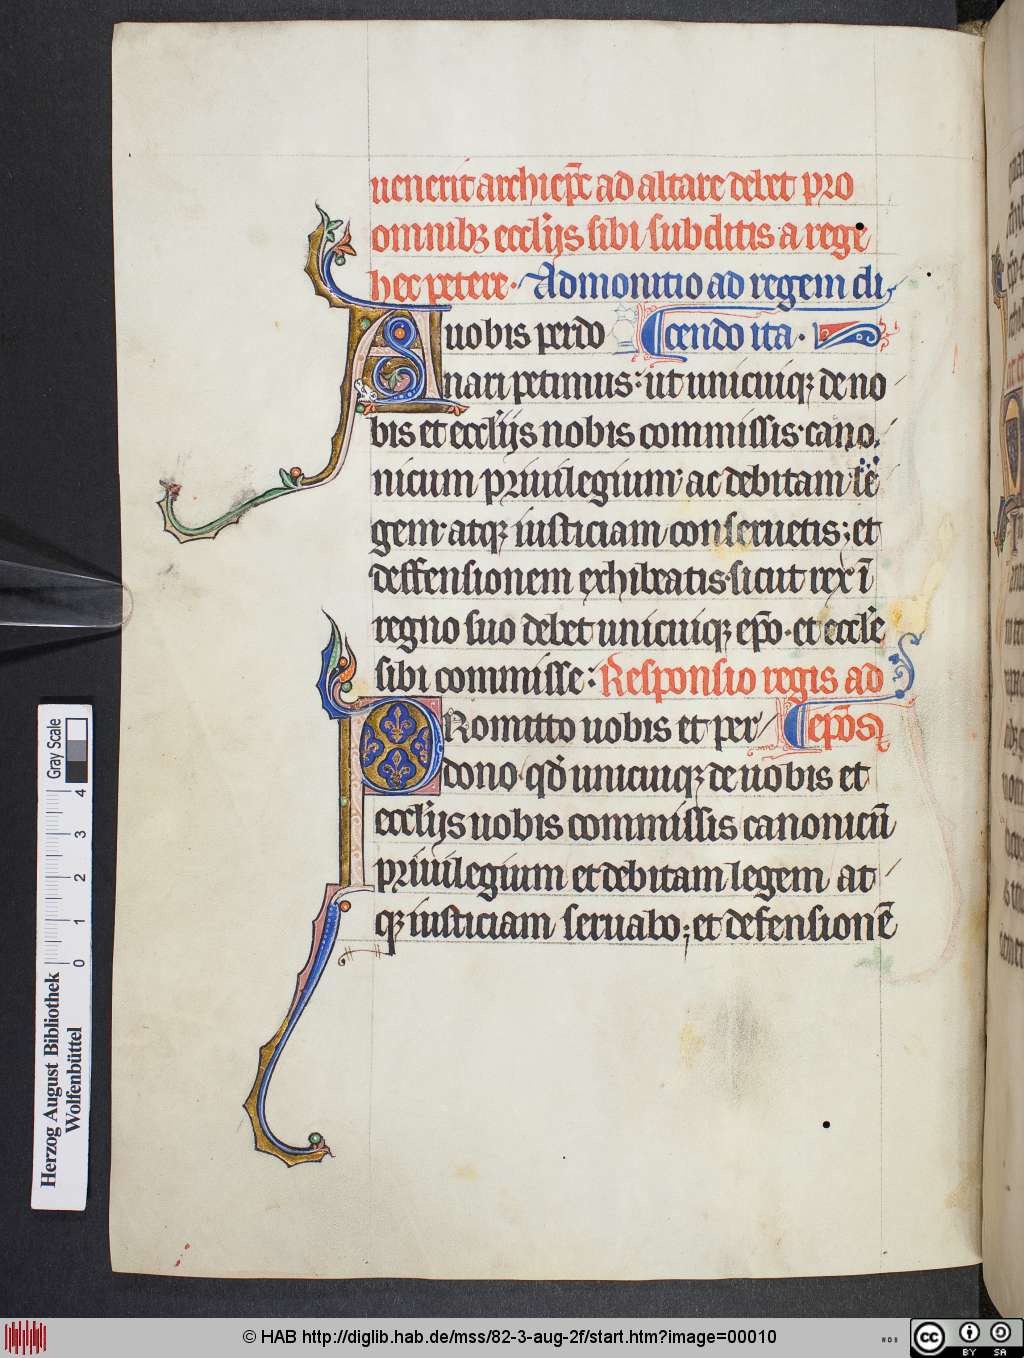 uenerit archiep̄c ad altare debet pro
omnibꝫ eccl̄ijs sibi subditis a rege
hec petere · Admonitio ad regem di
A uobis perdo cendo ita ·
nari petimus · ut unicuiqꝫ de no
bis et eccl̄ijs nobis commissis · cano
nicum priuilegium · ac debitam le
gem · atqꝫ iusticiam conseruetis ; et
deffensionem exhibeatis · sicut rex ī
regno suo debet unicuiqꝫ ep̄o · et eccl̄e
sibi commisse · Responsio regis ad
PRomitto uobis et per ep̄os
dono · qđ unicuiqꝫ de uobis et
eccl̄ijs uobis commissis canonicū
priuilegium et debitam legem at
qꝫ iusticiam seruabo ; et defensionē
Gray Scale
0 1 2 3 4
Herzog August Bibliothek
Wolfenbüttel
© HAB http://diglib.hab.de/mss/82-3-aug-2f/start.htm?image=00010
WDB
cc BY SA